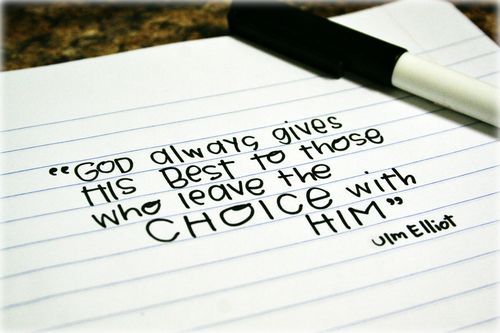 "GOD always gives
HIS BEST to those
who leave the
CHOICE with
HIM"
JIm Elliot